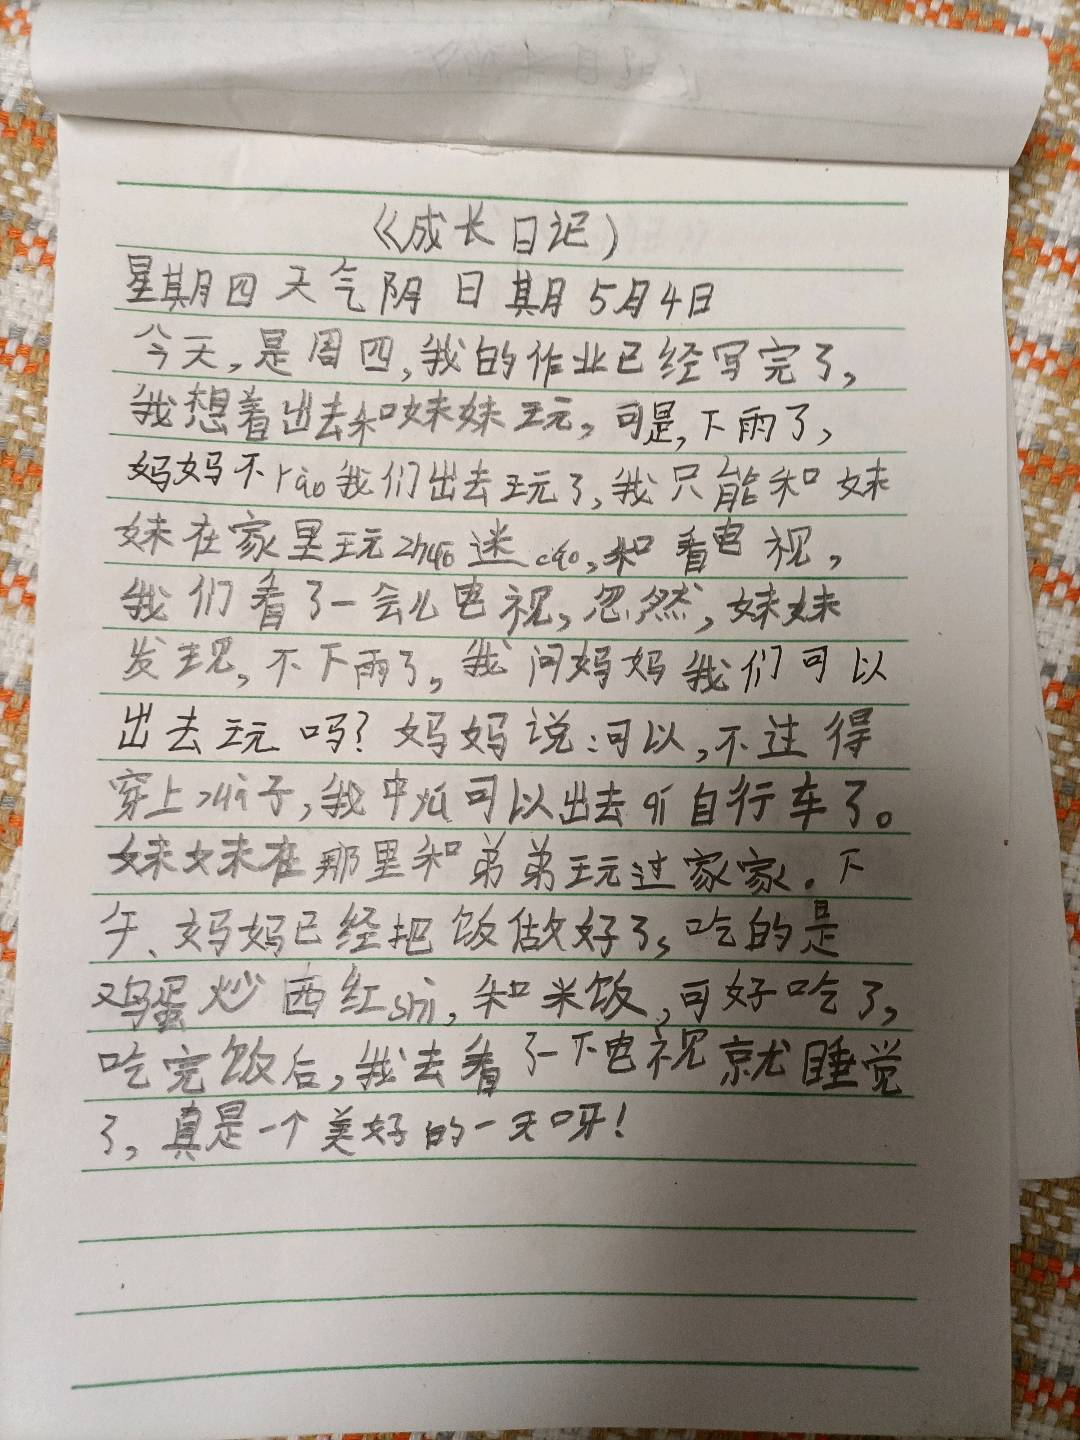 《成长日记》
星期四 天气阴 日期5月4日
今天,是周四,我的作业已经写完了,
我想着出去和妹妹玩,可是,下雨了,
妈妈不rang我们出去玩了,我只能和妹
妹在家里玩zhuo迷cang,和看电视,
我们看了一会儿电视,忽然,妹妹
发现,不下雨了,我问妈妈我们可以
出去玩吗?妈妈说:可以,不过得
穿上wai子,我 可以出去qi自行车了。
妹妹在那里和弟弟玩过家家。下
午、妈妈已经把饭做好了,吃的是
鸡蛋炒西红shi,和米饭,可好吃了,
吃完饭后,我去看了一下电视就睡觉
了,真是一个美好的一天呀!